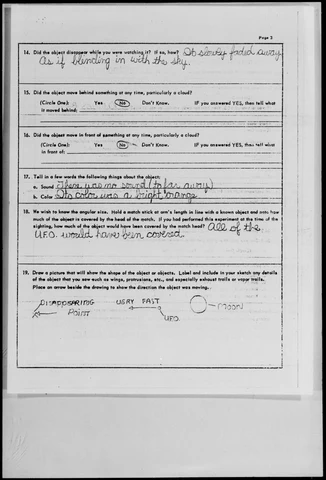 Page 3
14. Did the object disappear while you were watching it? If so, how? It slowly faded away
As if blending in with the sky.
15. Did the object move behind something at any time, particularly a cloud?
(Circle One): Yes No Don't Know. IF you answered YES, then tell what
it moved behind:
16. Did the object move in front of something at any time, particularly a cloud?
(Circle One): Yes No Don't Know. IF you answered YES, then tell what
in front of:
17. Tell in a few words the following things about the object:
a. Sound There was no sound (to far away)
b. Color Its color was a bright orange
18. We wish to know the angular size. Hold a match stick at arm's length in line with a known object and note how
much of the object is covered by the head of the match. If you had performed this experiment at the time of the
sighting, how much of the object would have been covered by the match head? All of the
U.F.O. would have been covered
19. Draw a picture that will show the shape of the object or objects. Label and include in your sketch any details
of the object that you saw such as wings, protrusions, etc., and especially exhaust trails or vapor trails.
Place an arrow beside the drawing to show the direction the object was moving.
DISAPPEARING VERY FAST MOON
POINT UFO